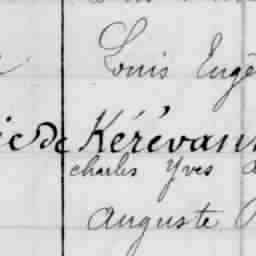 Louis Eugè
de Kérévan
charles Yves
Auguste